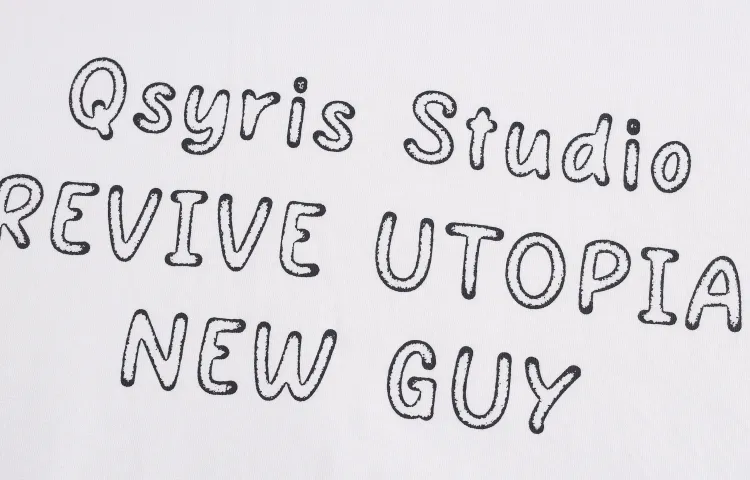 Qsyris Studio
REVIVE UTOPIA
NEW GUY